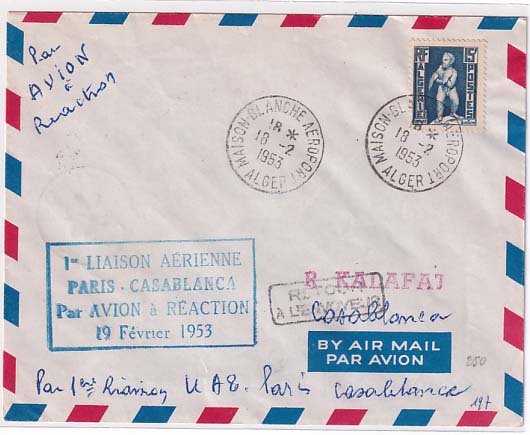 Par
AVION
à
Réaction
ALGERIE
15F
POSTES
MAISON-BLANCHE AÉROPORT
18 *
18 -2
1953
ALGER
MAISON-BLANCHE AÉROPORT
18 *
18 -2
1953
ALGER
1re LIAISON AÉRIENNE
PARIS - CASABLANCA
Par AVION à RÉACTION
19 Février 1953
R. KALAFAT
RETOUR
À L'ENVOYEUR
Casablanca
BY AIR MAIL
PAR AVION
250
Par 1ère liaison UAE. Paris Casablanca
197